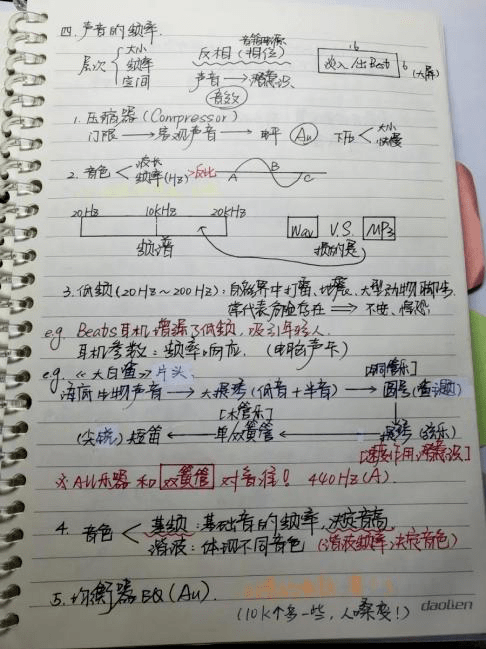 四.声音的频率.
层次 大小 频率 空间
反相(相位)
声音→潜意识
音效
淡入/出 Beat (大屏)
1.压缩器(Compressor)
门限→客观声音→电平 Au 下压<大小 快慢
2.音色<波长 频率(Hz)>反比 A B C
20Hz 10KHz 20KHz
频谱
Wav V.S. MP3
3.低频(20Hz~200Hz):自然界中打雷、地震、大型动物脚步.
常代表危险存在⇒不安,恐惧.
e.g. Beats耳机增强了低频,吸引年轻人.
耳机参数:频率响应.(电脑声卡)
e.g.《大白鲨》片头.
[铜管乐]
海底生物声音→大提琴(低音+半音)→圆号(主题)
[木管乐]
(尖锐)短笛←单双簧管←提琴(弦乐)
※All乐器和双簧管对音准! 440Hz(A).
4.音色<基频:基础音的频率,决定音高.
谐波:体现不同音色(谐波频率决定音色)
5.均衡器EQ(Au).
(10K个多一些,人嗓变!)
daolen